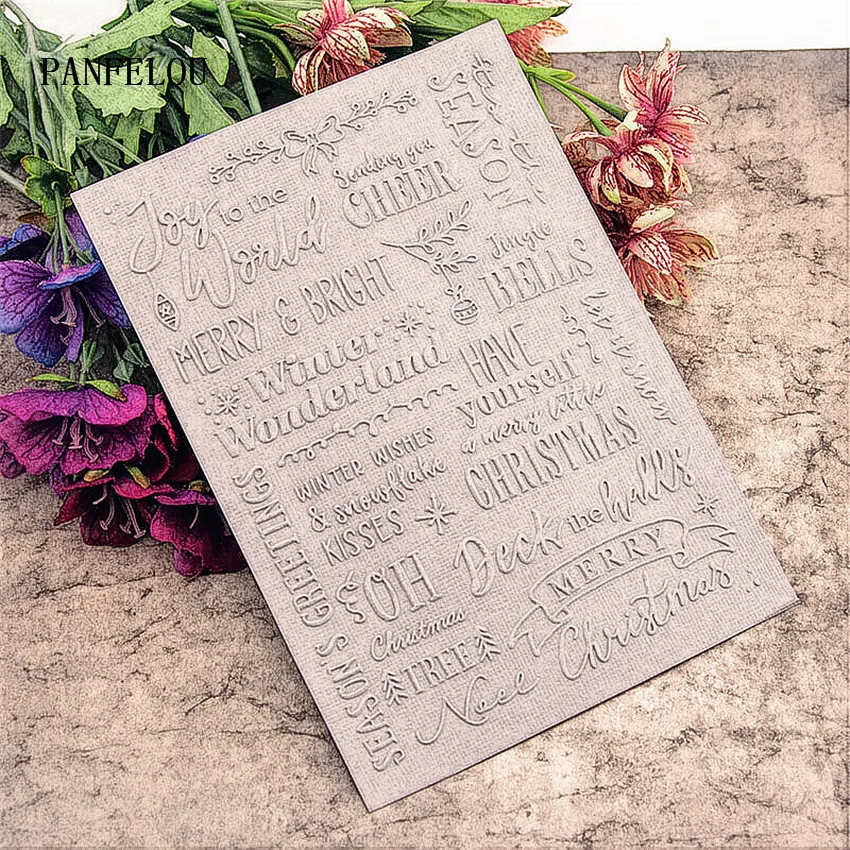 PANFELOU
Joy
to the
World
Sending you
CHEER
'tis the
SEASON
MERRY & BRIGHT
Jingle
BELLS
Winter
Wonderland
HAVE
yourself
a merry little
CHRISTMAS
let it snow
WINTER WISHES
& snowflake
KISSES
SEASON'S GREETINGS
OH
Christmas
TREE
Deck the halls
MERRY
Christmas
Noel